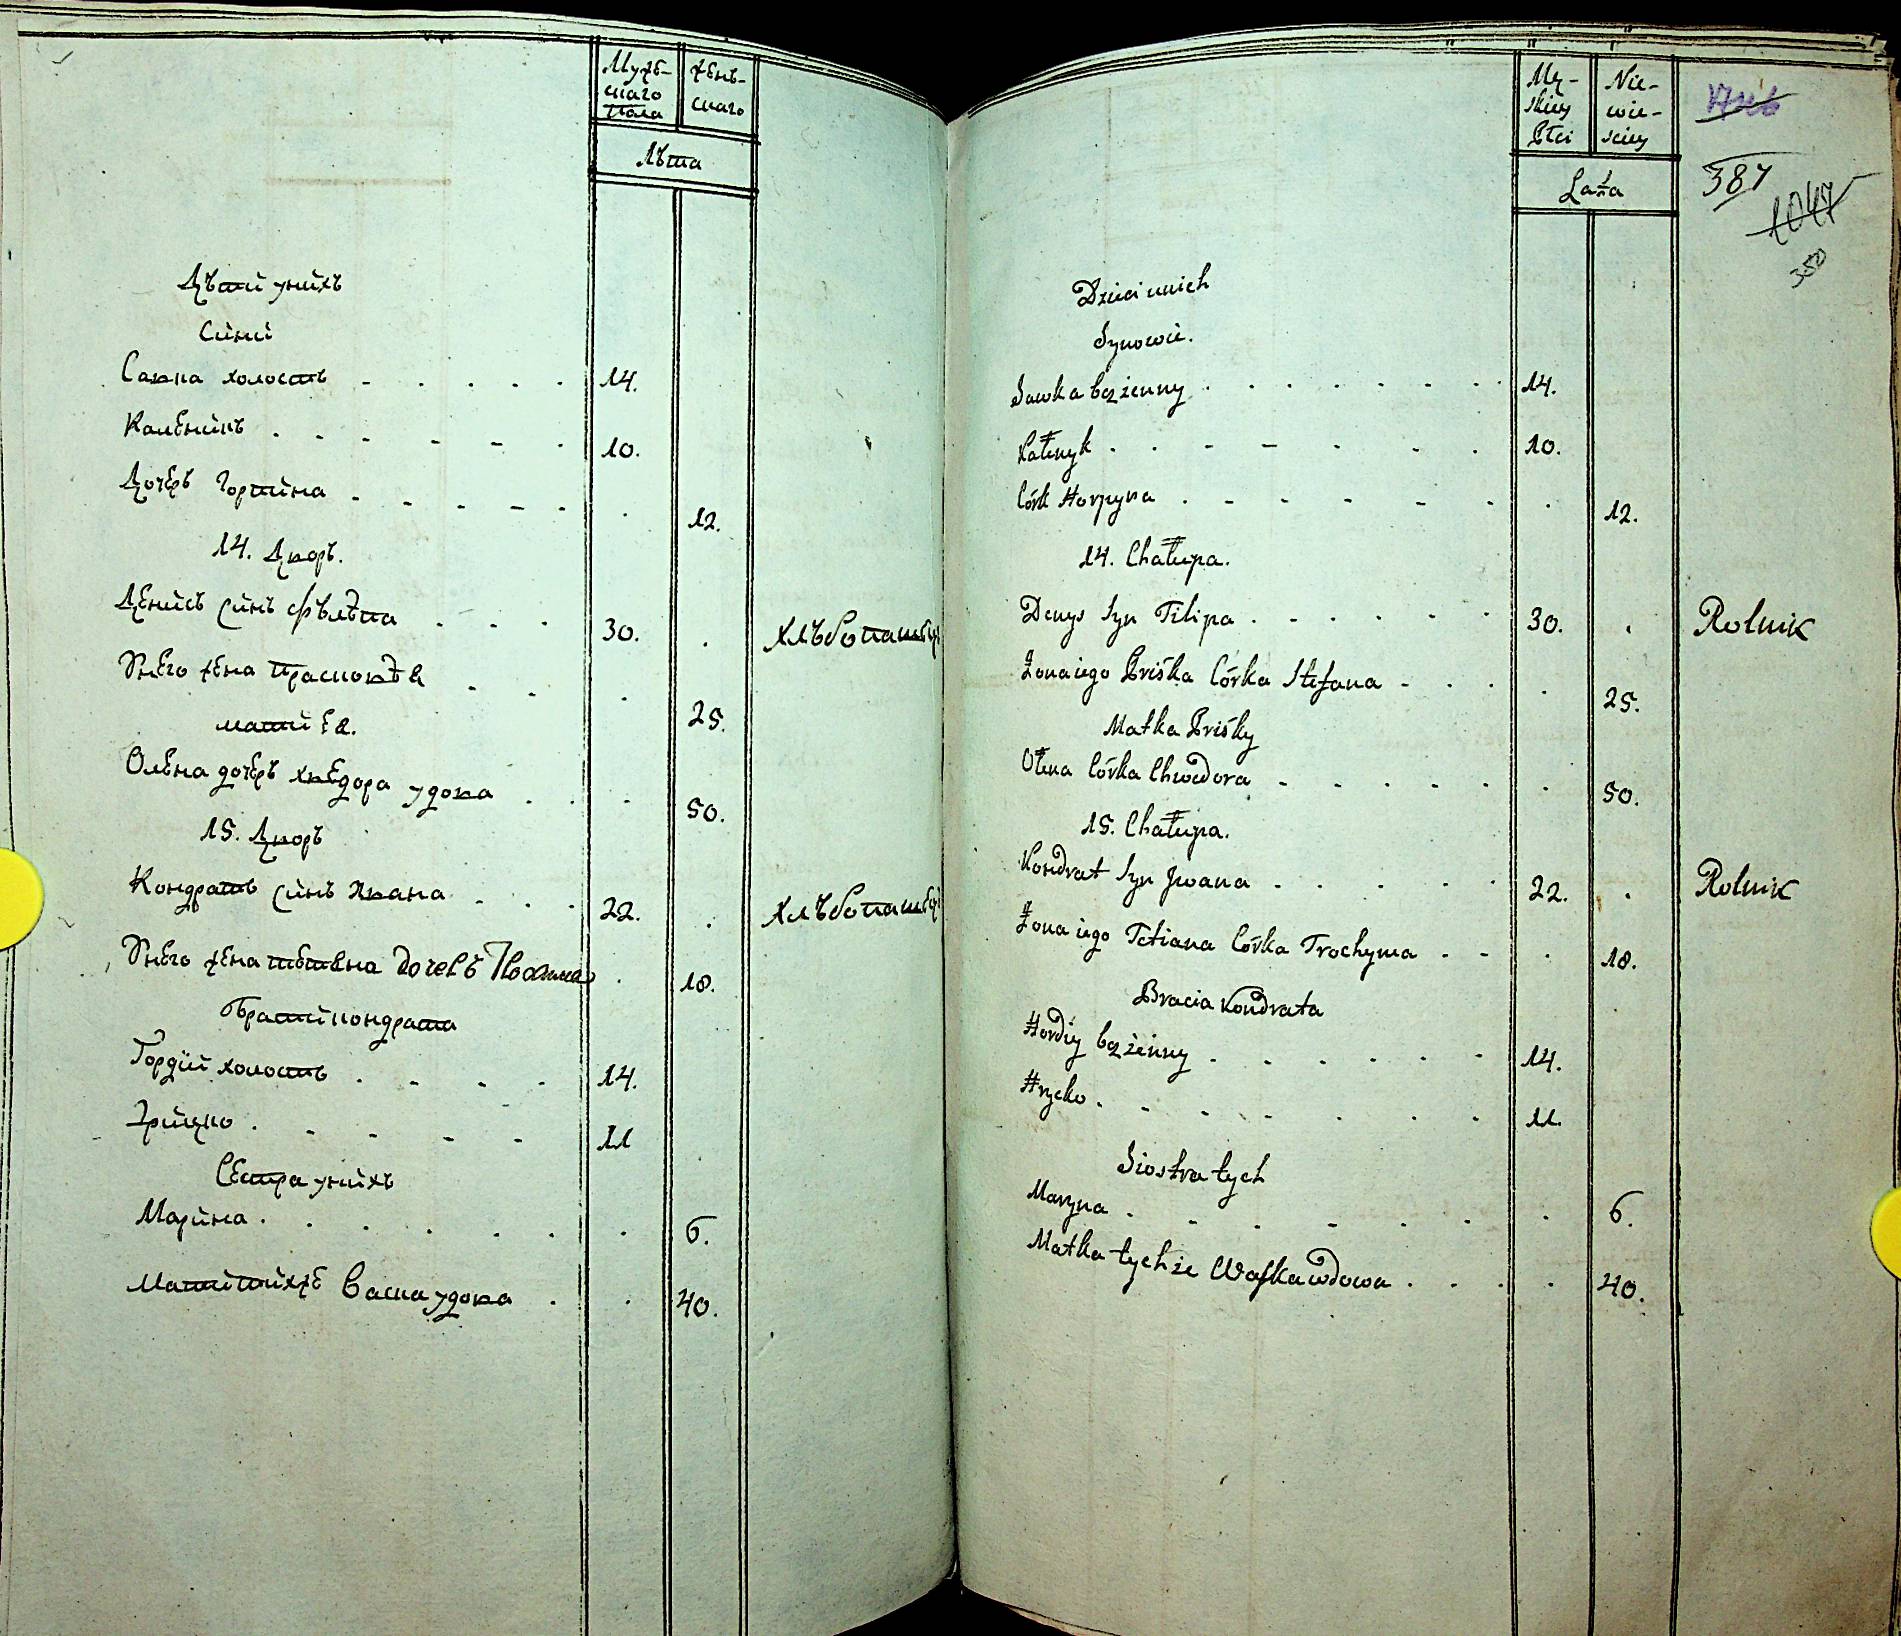 Мужескаго пола
женскаго
Лѣта
Дѣти у нихъ
Сини
Савка холостъ 14.
Калѣникъ 10.
Дочерь Горпина 12.
14. Дворъ.
Денисъ синъ Фѣлѣпа 30. Хлѣбопашец
У него жена Прасковѣя 25.
мати Ея.
Олѣна дочерь Хведора удова 50.
15. Дворъ
Кондратъ синъ Ивана 22. Хлѣбопашец
У него жена Тетяна дочерь 18.
Брати Кондрата
Гордій холостъ 14.
Грицко 11
Сестра у нихъ
Марина 6.
Мати тихже Васка удова 40.
Męskiey Płci
Niewiesciey
Lata
387
1047
350
Dzieci u nich
Synowie.
Sawka bezżenny 14.
Kałenyk 10.
Córk Horpyna 12.
14. Chałupa.
Denys Syn Filipa 30. Rolnik
Żona iego Priśka Córka Stefana 25.
Matka Priśky
Ołena Córka Chwedora 50.
15. Chałupa.
Kondrat Syn Jwana 22. Rolnik
Żona iego Tetiana Córka Trochyma 18.
Bracia Kondrata
Hordiy bezżenny 14.
Hrycko 11.
Siostra tych
Maryna 6.
Matka tychże Waska wdowa 40.